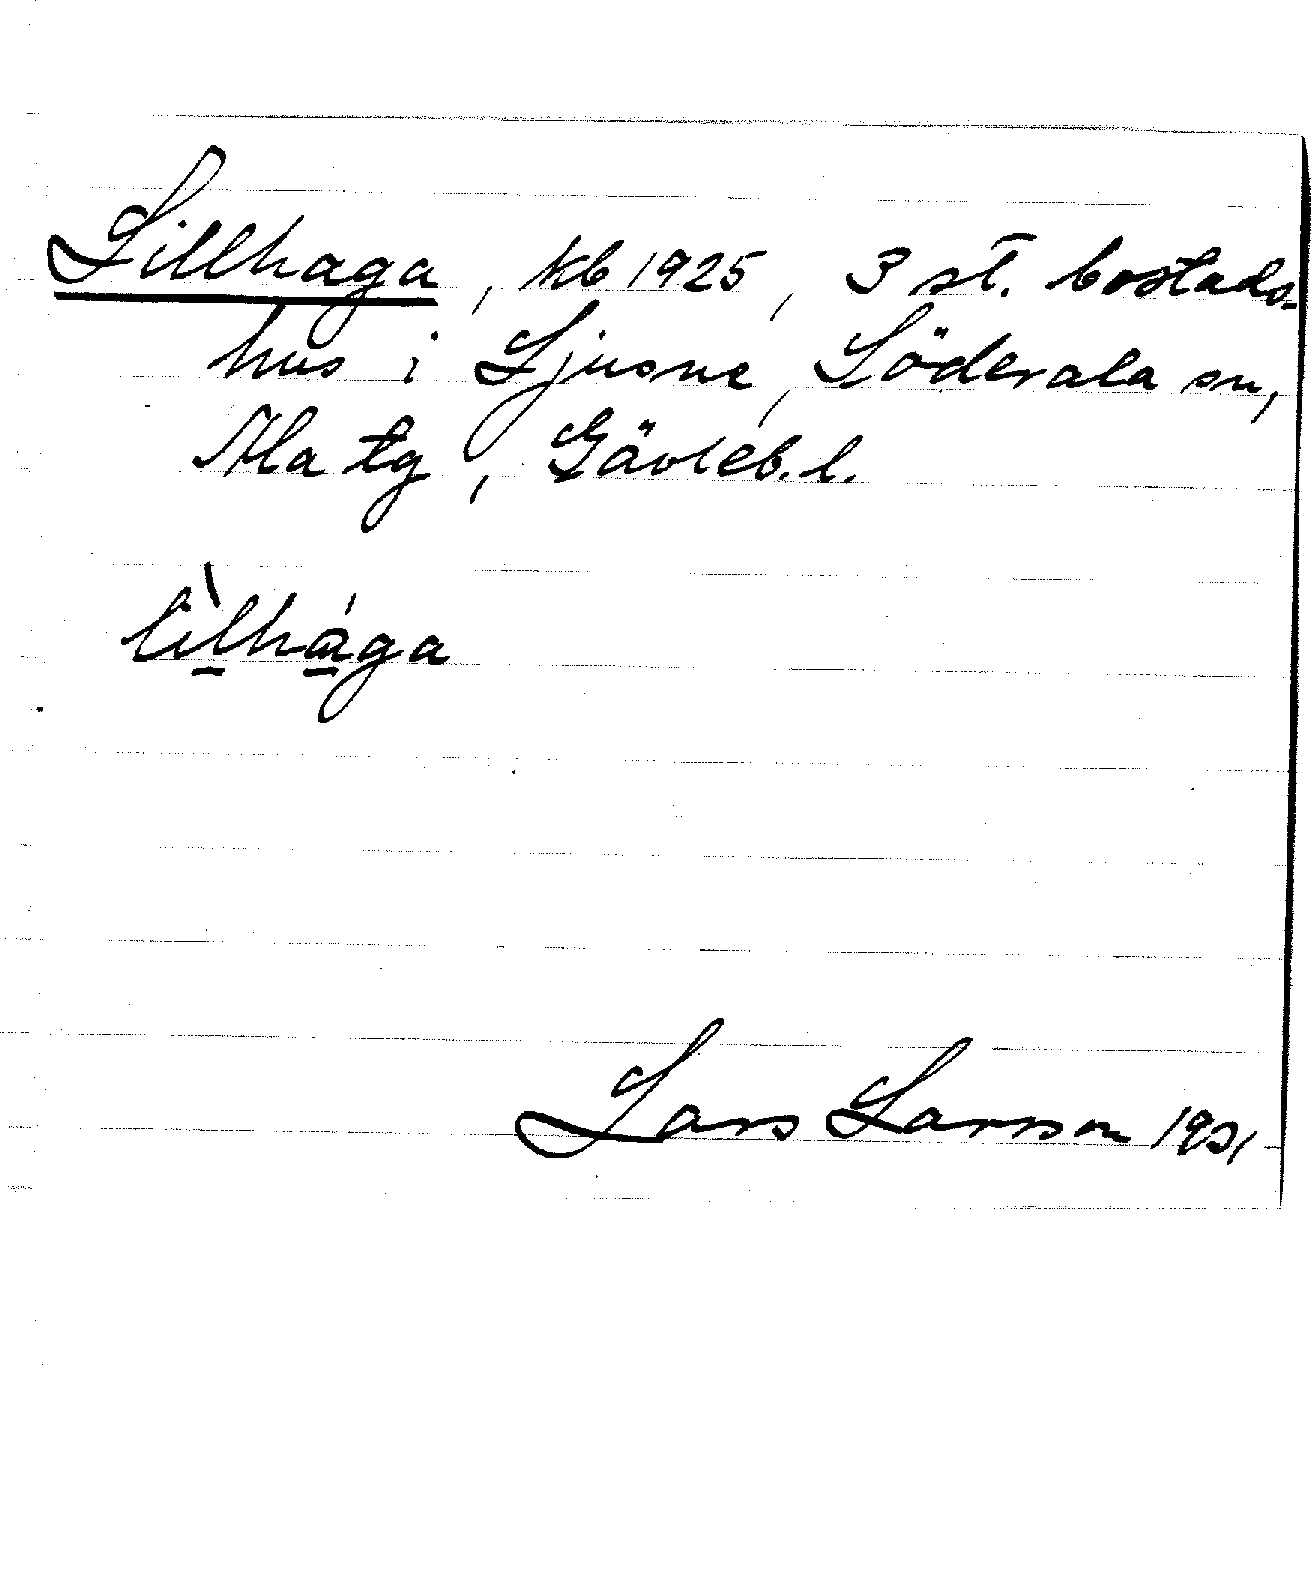 Lillhaga, kb 1925, 3 st. bostads-
hus i Ljusne, Söderala sn,
Ala tg, Gävleb. l.
lìlhága
Lars Larsson